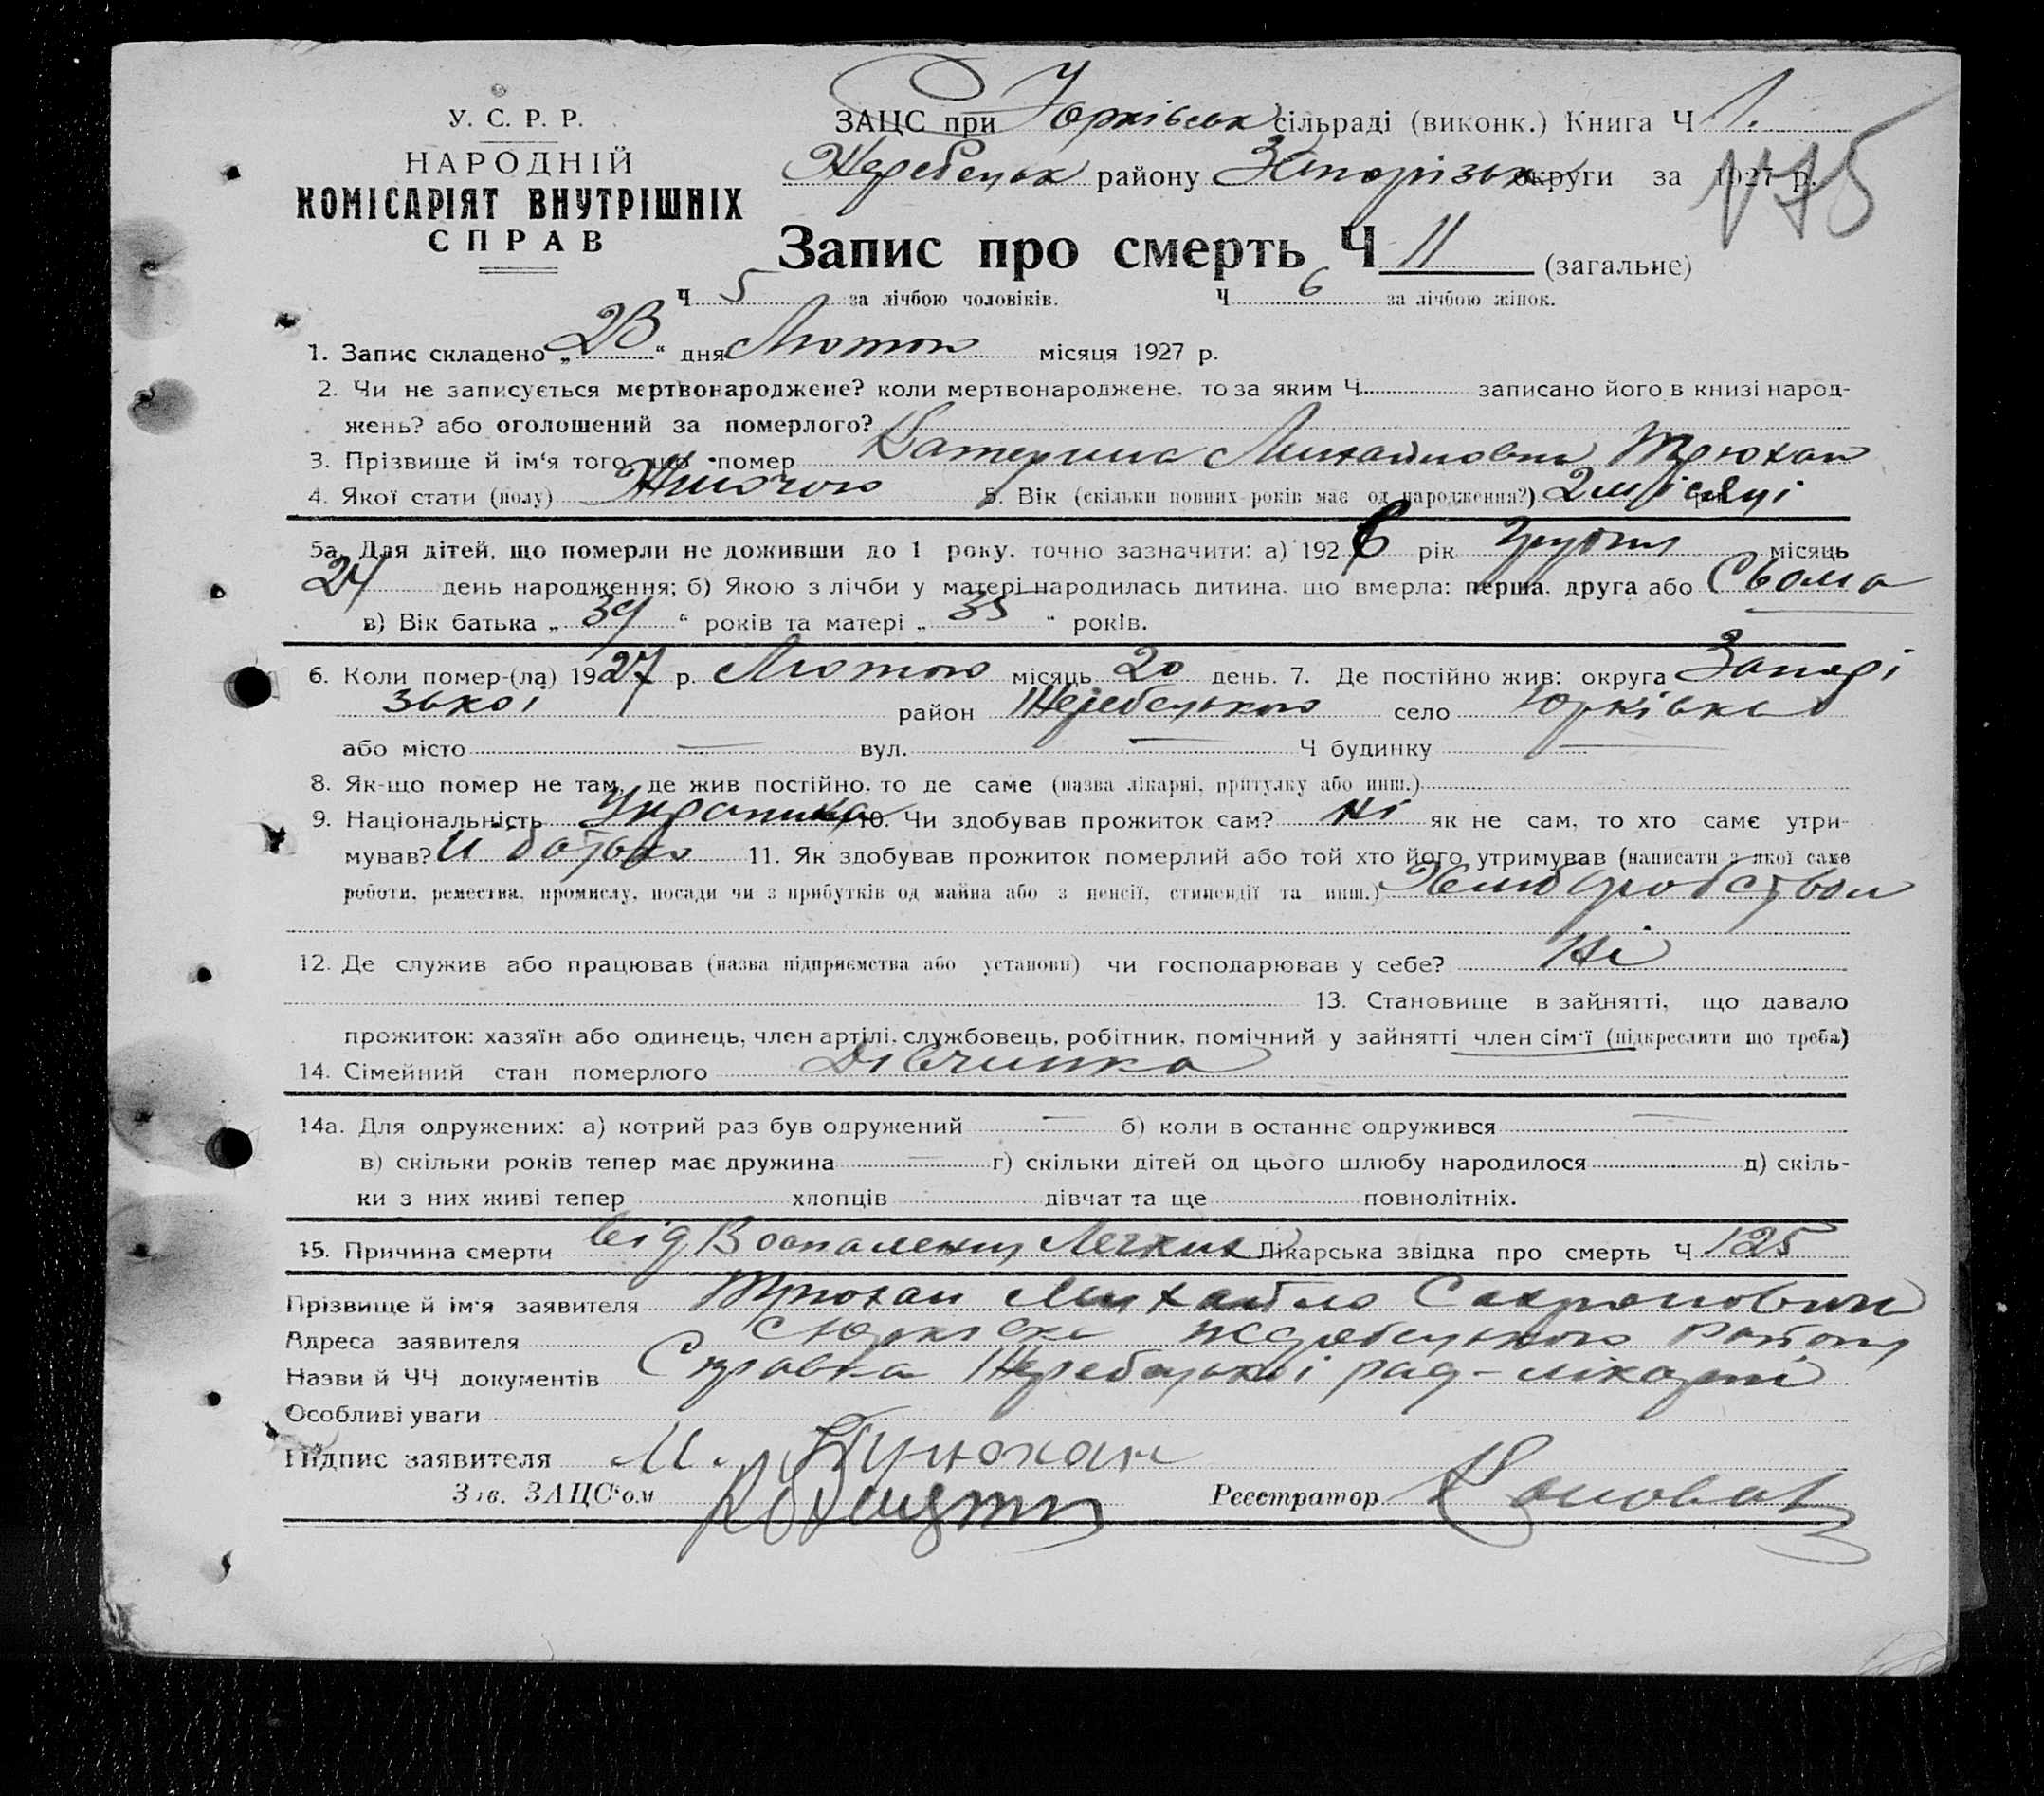 У. С. Р. Р.
НАРОДНІЙ
КОМІСАРІЯТ ВНУТРІШНІХ
СПРАВ
ЗАЦС при Юрківськ сільраді (виконк.) Книга Ч 1.
Жеребецьк району Запорізьк округи за 1927 р.
175
Запис про смерть Ч 11 (загальне)
Ч 5 за лічбою чоловіків. Ч 6 за лічбою жінок.
1. Запис складено „23“ дня Лютого місяця 1927 р.
2. Чи не записується мертвонароджене? коли мертвонароджене, то за яким Ч записано його в книзі народ-
жень? або оголошений за померлого?
3. Прізвище й ім‘я того, що помер Катерина Михайловна Трюхан
4. Якої стати (полу) Жіночою 5. Вік (скільки повних років має од народження?) 2 місяці
5а. Для дітей, що померли не доживши до 1 року, точно зазначити: а) 1926 рік Грудня місяць
24 день народження; б) Якою з лічби у матері народилась дитина, що вмерла: перша, друга або Сьома
в) Вік батька „39“ років та матері „35“ років.
6. Коли помер-(ла) 1927 р. Лютого місяць 20 день. 7. Де постійно жив: округа Запорі
зької район Жеребецького село Юрківка
або місто — вул. — Ч будинку —
8. Як-що помер не там, де жив постійно, то де саме (назва лікарні, притулку або инш.)
9. Національність Українка 10. Чи здобував прожиток сам? Ні як не сам, то хто саме утри-
мував? її батько 11. Як здобував прожиток померлий або той хто його утримував (написати з якої саме
роботи, ремества, промислу, посади чи з прибутків од майна або з пенсії, стипендії та инш.) Хліборобством
12. Де служив або працював (назва підприємства або установи) чи господарював у себе? Ні
13. Становище в зайнятті, що давало
прожиток: хазяїн або одинець, член артілі, службовець, робітник, помічний у зайнятті член сім‘ї (підкреслити що треба)
14. Сімейний стан померлого Дівчинка
14а. Для одружених: а) котрий раз був одружений — б) коли в останнє одружився —
в) скільки років тепер має дружина — г) скільки дітей од цього шлюбу народилося д) скіль-
ки з них живі тепер хлопців дівчат та ще повнолітніх.
15. Причина смерти від Воспаления Легких Лікарська звідка про смерть Ч 125
Прізвище й ім‘я заявителя Трюхан Михайло Сахронович
Адреса заявителя с Юрківка Жеребецького району
Назви й ЧЧ документів Справка Жеребецької рад-лікарні
Особливі уваги
Підпис заявителя М. Трюхан
Зав. ЗАЦС‘ом
Реєстратор